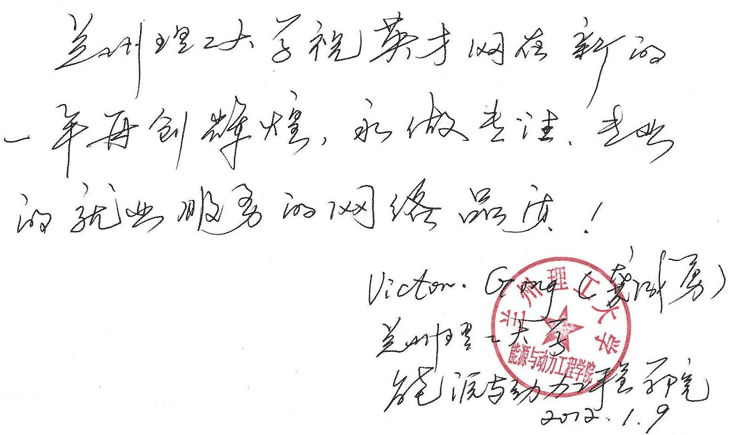 兰州理工大学祝英才网在新的
一年再创辉煌，永做专注、专业
的就业服务的网络品质！
Victor. Gong（龚成勇）
兰州理工大学
能源与动力工程学院
2012.1.9
兰州理工大学
能源与动力工程学院